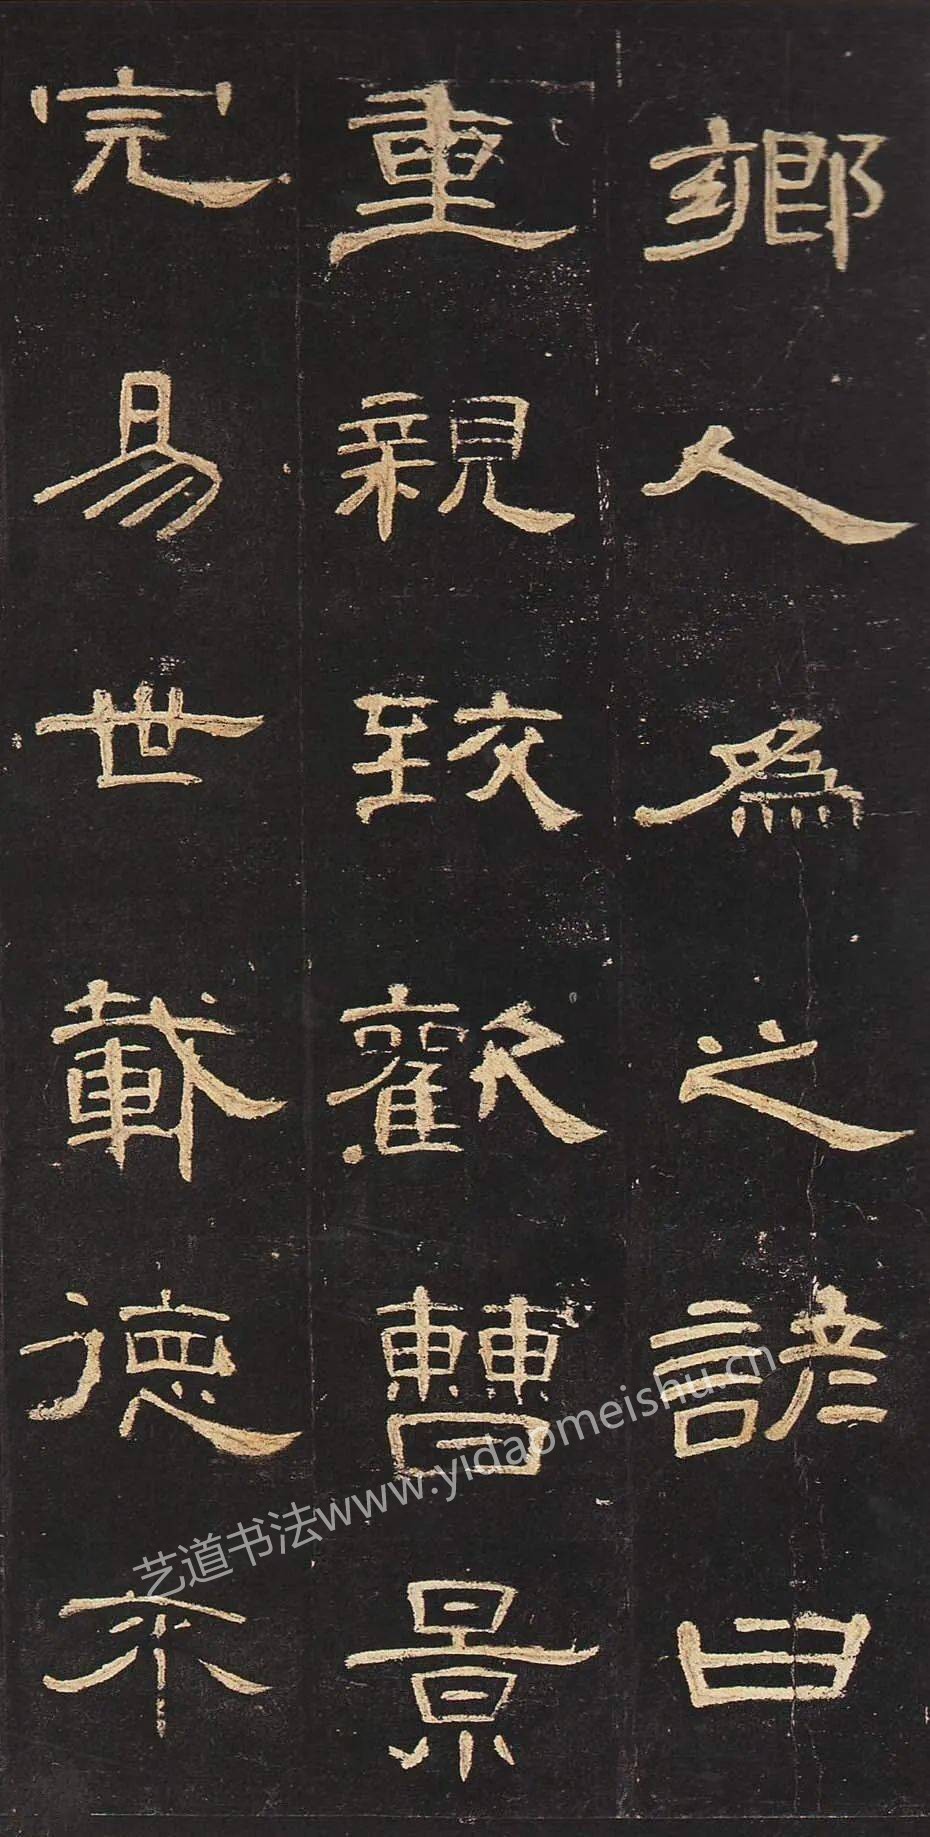 鄉人為之諺曰
重親致歡曹景
完易世載德不
艺道书法www.yidaomeishu.cn